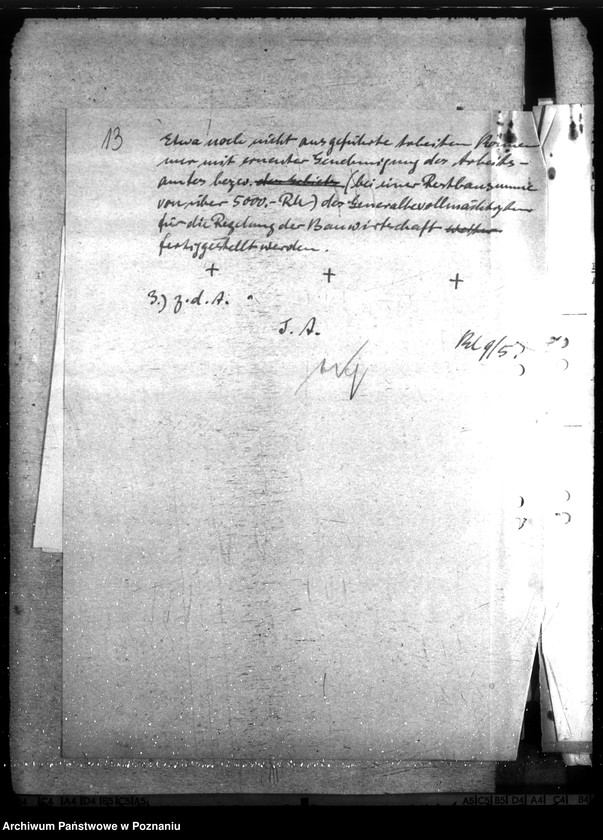 13
Etwa noch nicht ausgeführte Arbeiten können
nur mit erneuter Genehmigung des Arbeits-
amtes bezw. (bei einer Restbausumme
von über 5000.- RM) des Generalbevollmächtigten
für die Regelung der Bauwirtschaft
fertiggestellt werden.
+ + +
3.) z.d.A.
I. A.
9/5.
A5 C5 B5 D4 A4 C4 B4
Archiwum Państwowe w Poznaniu